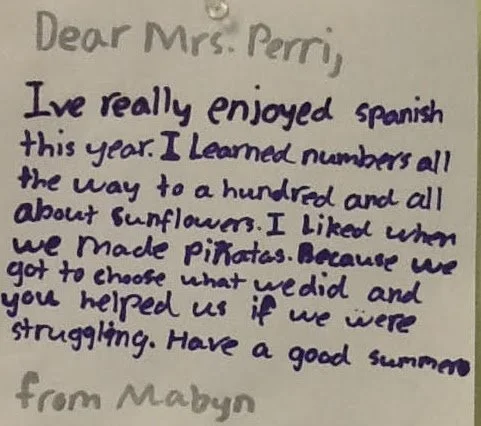 Dear Mrs. Perri,
Ive really enjoyed spanish
this year. I Learned numbers all
the way to a hundred and all
about sunflowers. I Liked when
we made piñatas. Because we
got to choose what we did and
you helped us if we were
struggling. Have a good summer
from Mabyn